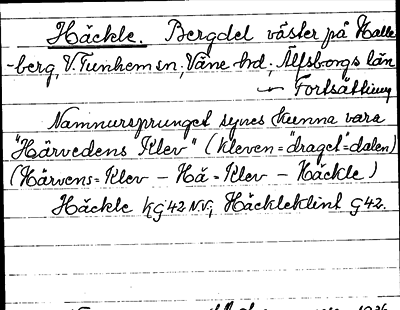 Häckle. Bergdel väster på Halle
-berg, V. Tunhem sn, Väne hd, Älfsborgs län
← Fortsättning
Namnursprunget synes kunna vara
"Härvedens Klev" (kleven = "draget" = dalen)
(Härvens = Klev - Hä = Klev - Häckle)
Häckle kg 42 NV; Häckleklint G 42.